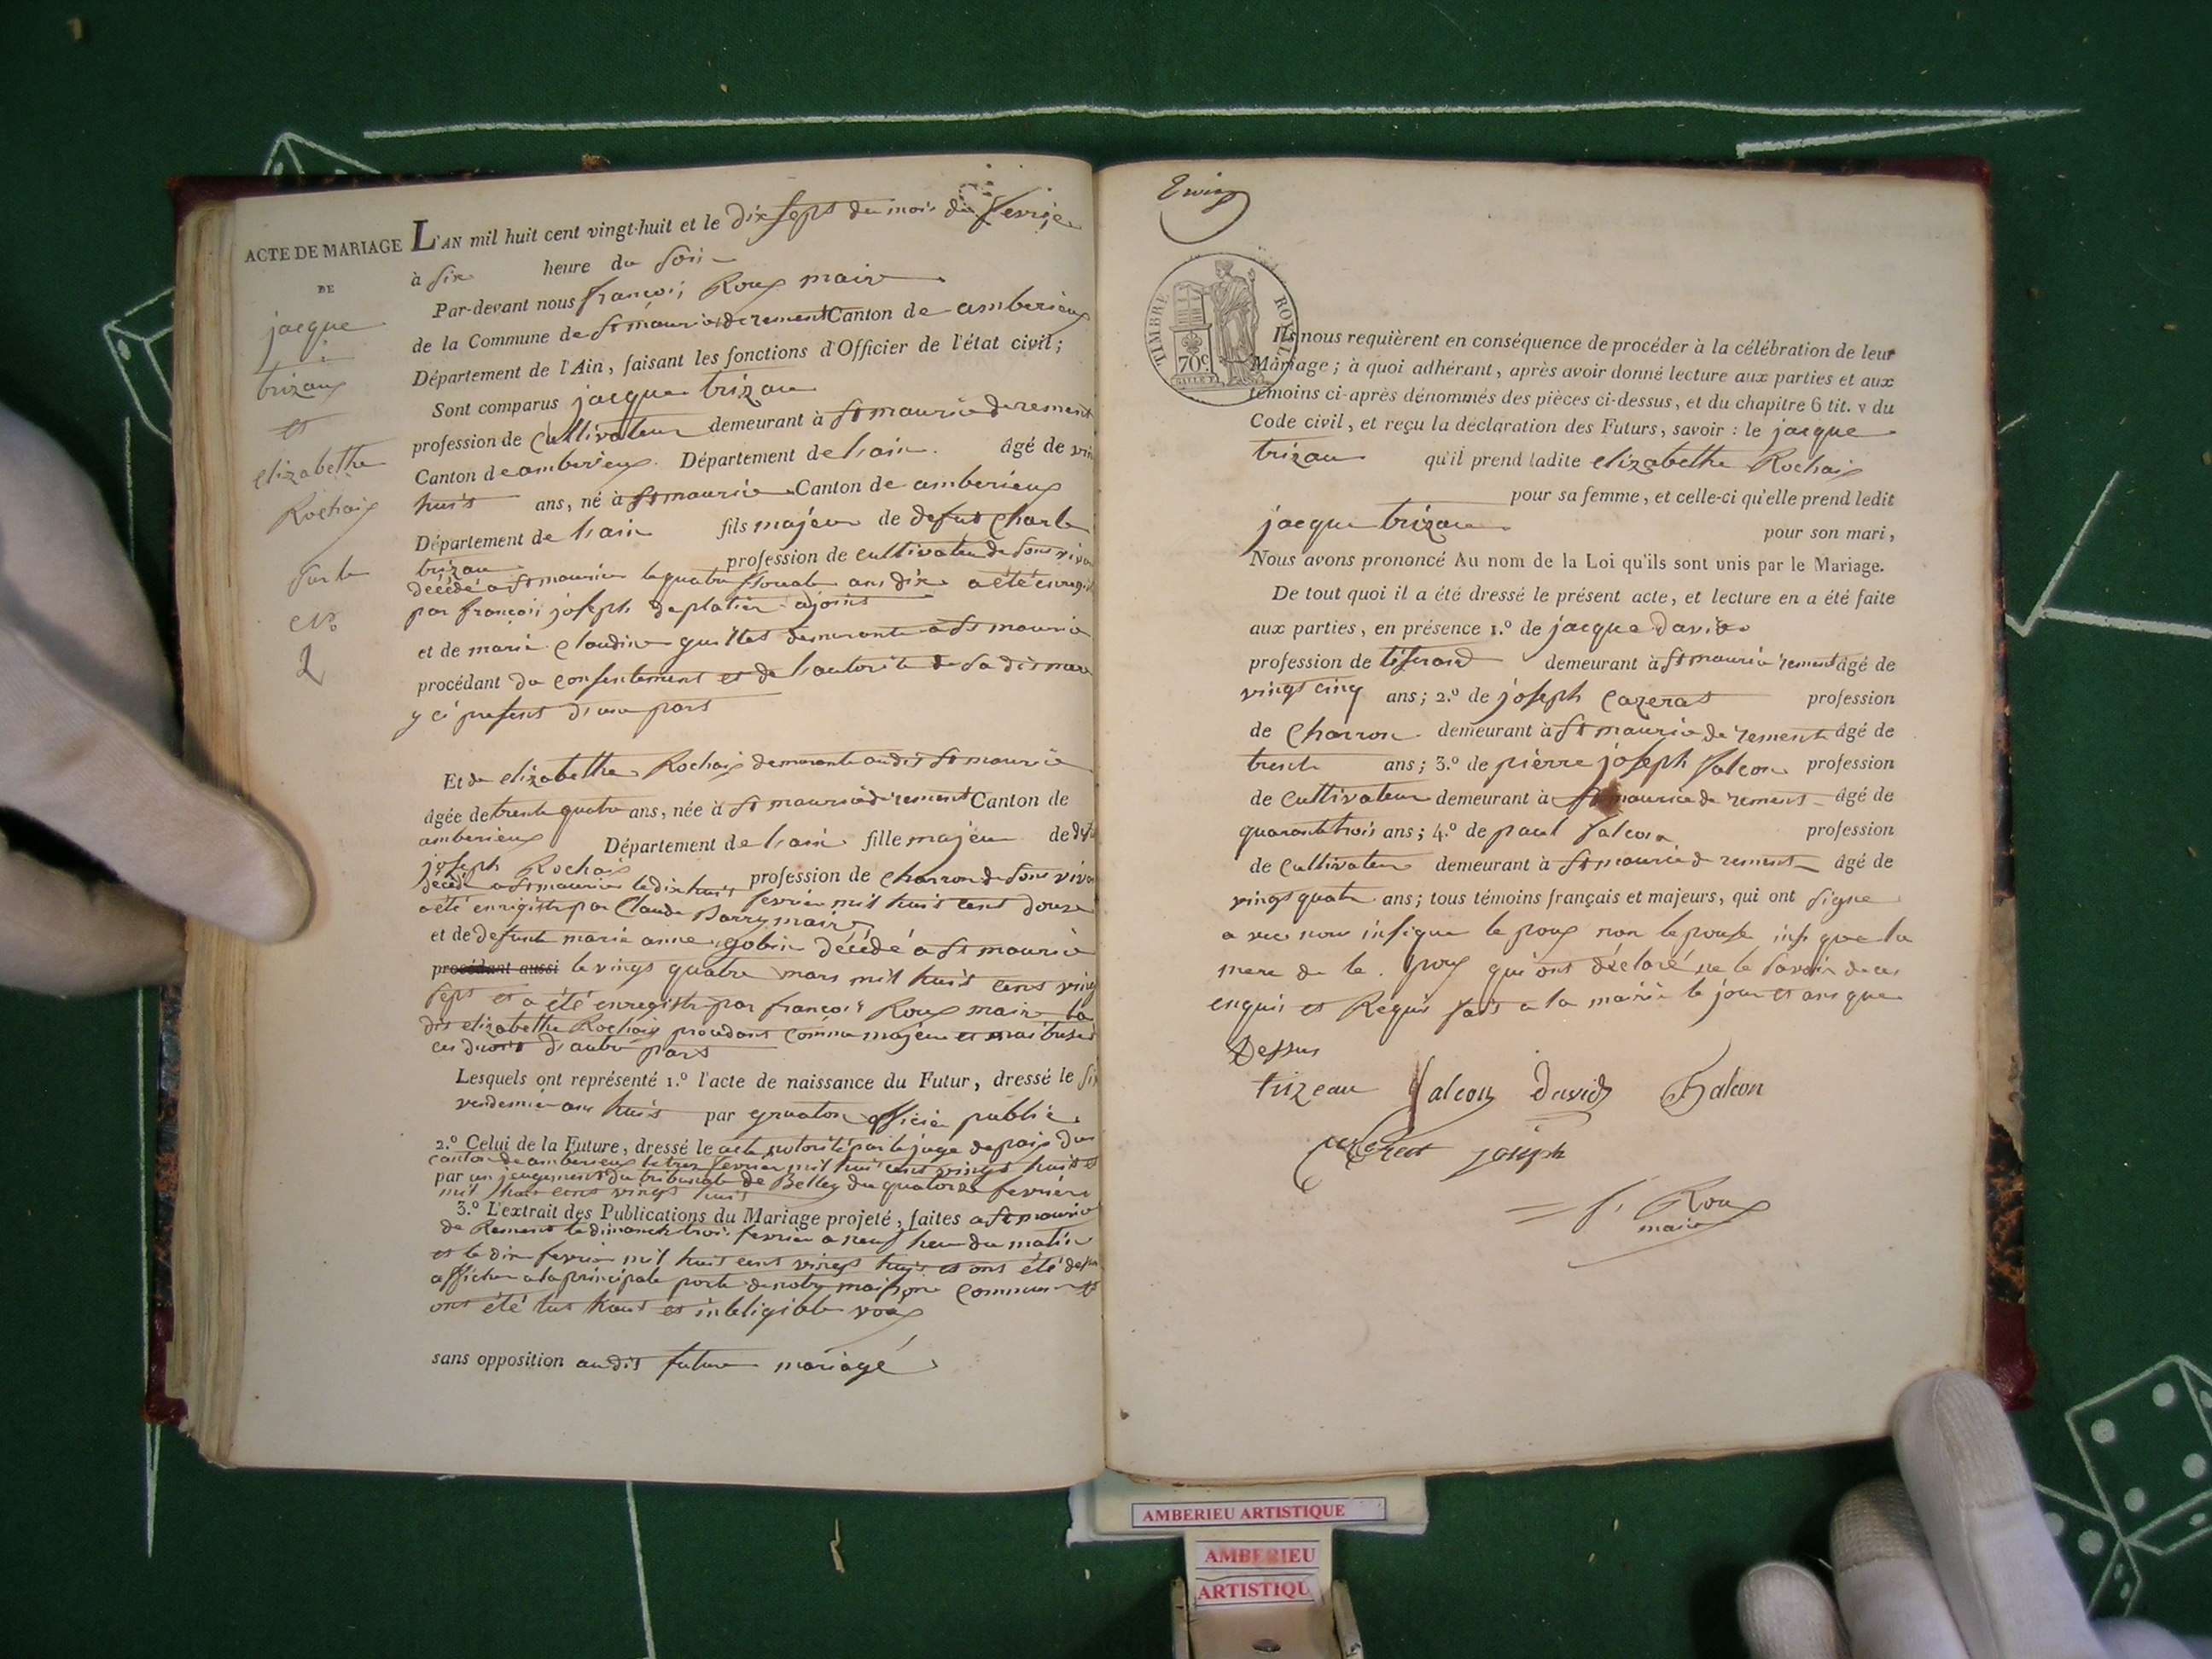 ACTE DE MARIAGE
DE
jacque
trizaux
et
elizabethe
Rochaix
sur le
No
2
L'AN mil huit cent vingt-huit et le dix sept du mois de fevrie
à six heure du soir
Par-devant nous françois Roux maire
de la Commune de St maurice de rement Canton de amberieux
Département de l'Ain, faisant les fonctions d'Officier de l'état civil;
Sont comparus jacque trizau
profession de Cultivateur demeurant à St maurice de rement
Canton de amberieux Département de lain âgé de vin
huit ans, né à St maurice Canton de amberieux
Département de lain fils majeur de defut Charle
trizau profession de cultivateur de sont viva
décédé a St maurice le quatre floreale ans dix a été enregit
par françois joseph deplatier ajoint
et de marie Claudine guillet demeurante a St maurice
procédant du consentement et de lautorité de sa dit mere
y ci present d'une part
Et de elizabethe Rochaix demeurante audit St maurice
âgée de trente quatre ans, née à St maurice de rement Canton de
amberieux Département de lain fille majeure de defu
joseph Rochaix profession de charron de sont viva
décédé a St maurice le dix huit fevrier mil huit cent douze
a été enrigistr par Claude Barry maire
et de defunte marie anne gobin décédé a St maurice
procédant aussi le vingt quatre mars mil huit cent vingt
sept et a été enregistr par françois Roux maire la
dit elizabethe Rochaix procedant comme majeure et maitresse
ces droits d'autre part
Lesquels ont représenté 1.º l'acte de naissance du Futur, dressé le six
vendemiaire ans huit par gruaton officier public
2.º Celui de la Future, dressé le acte notorité par le juge depaix du
canton de amberieux le treze fevrier mil huit cent vingt huit et
par un jeugement du tribunale de Belley du quatorze fevrier
mil huit cent vingt huit
3.º L'extrait des Publications du Mariage projeté, faites a St maurice
de Rement le dimanche trois fevrier a neuf heure du matin
et le dix fevrier mil huit cent vingt huit et ont été
afficher a la principale porte de notre maison commune et
ont été lut haut et inteligible voix
sans opposition audit future mariage
TIMBRE ROYAL
70c.
Ils nous requièrent en conséquence de procéder à la célébration de leur
Mariage; à quoi adhérant, après avoir donné lecture aux parties et aux
témoins ci-après dénommés des pièces ci-dessus, et du chapitre 6 tit. v du
Code civil, et reçu la déclaration des Futurs, savoir : le jacque
trizau qu'il prend ladite elizabethe Rochaix
pour sa femme, et celle-ci qu'elle prend ledit
jacque trizau pour son mari,
Nous avons prononcé Au nom de la Loi qu'ils sont unis par le Mariage.
De tout quoi il a été dressé le présent acte, et lecture en a été faite
aux parties, en présence 1.º de jacque david
profession de tiserand demeurant à St maurice rement âgé de
vingt cinq ans; 2.º de joseph Cazerat profession
de Charron demeurant à St maurice de rement âgé de
trente ans; 3.º de pierre joseph falcon profession
de Cultivateur demeurant à St maurice de rement âgé de
quarante trois ans; 4.º de paul falcon profession
de Cultivateur demeurant à St maurice de rement âgé de
vingt quatre ans; tous témoins français et majeurs, qui ont signe
a vec nous insique le poux non le pouse insi que la
mere de le poux qui ont déclaré ne le savoir de ce
enquis et Requis fait a la mairie le jour et ans que
Dessus
trizeau falcon david Falcon
joseph
f. Roux
maire
AMBERIEU ARTISTIQUE
AMBERIEU
ARTISTIQU